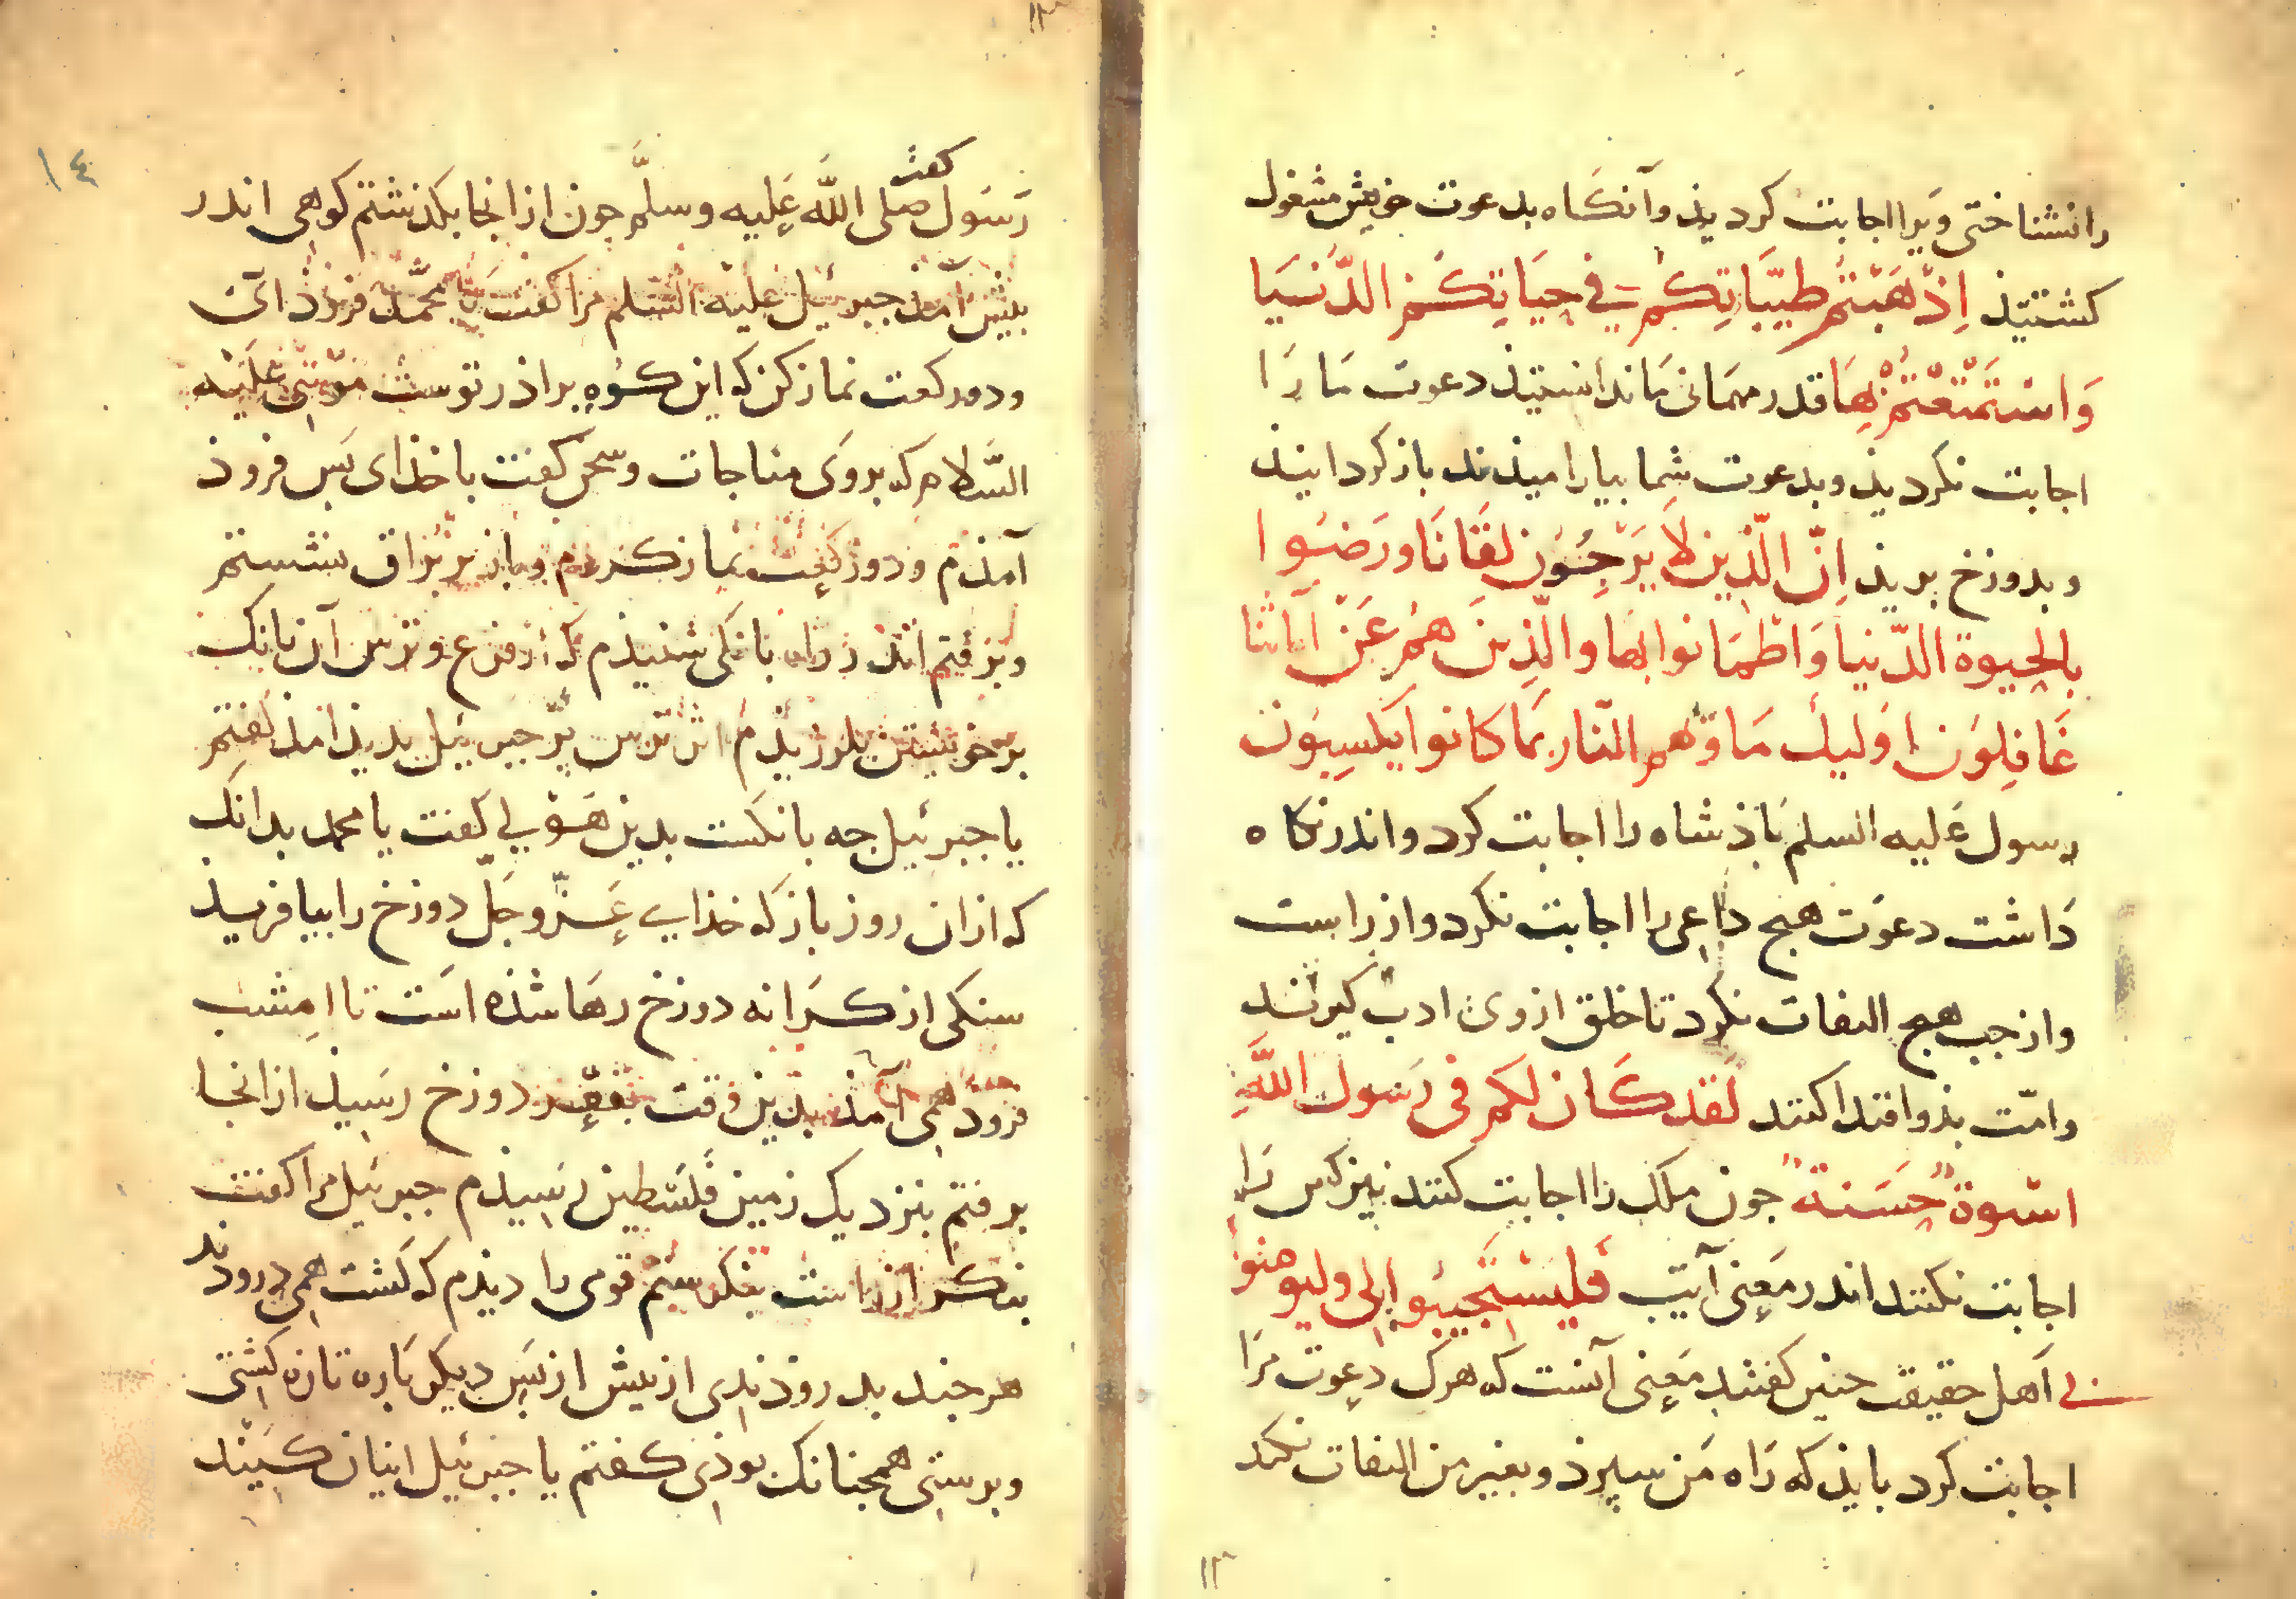 را نشناختی ویرا اجابت کردیذ وآنکاه بدعوت خویش مشغول
کشتیذ اِذْهَبْتُم طیّبَاتِکُم فِي حَیَاتِکُم الدُّنیَا
وَاسْتَمْتَعْتُمْ بِهَا قدر مهمانی ما ندانستیذ دعوت ما را
اجابت نکردیذ وبدعوت شما بیارامیذند باز کردانیند
وبدوزخ بریذ اِنّ الّذین لَا یَرْجُوْن لِقَانَا ورَضُوا
بالحیوة الدّنیا وَاطْمَانوا بها والّذِینَ هُم عَنْ آیاتنا
غَافِلوَن اوَلیك مَاوٰهم النّار بمَا کانوا یَکسِبُون
رسول عَلیه السلم باذشاه را اجابت کرد واندر نکاه
دَاشت دعوَت هیج داعی را اجابت نکرد واز راست
واز جب هیج التفات نکرد تا خلق ازوی ادب کیرند
وامّت بذو اقتدا کنند لَقد کَان لکم فی رَسول اللهِ
اسْوة حَسَنة جون ملک را اجابت کنند نیز کس رَا
اجابت نکنند اندر مَعنی آیت فَلیَسْتَجیبُو الی ولیومنوُا
بی اَهل حقیقت جنین کفتند مَعنی آنست که هرک دعوت مرَا
اجابت کرد بایذ که رَاه مَن سپرذ وبغیر من التفات نکند
۱۳
۱۳
۱٤
کفت
رَسَول صلی اللّه عَلیه وسلَّم جون از انجا بکذشتم کوهی اندر
بیش آمذ جبرئیل علیه السّلم مرا کفت یا محمّد فروذ آی
ودو رکعت نماز کن که این کوه براذر توست موسی عَلَیْه
السَّلام که بروَی مناجات وسخن کفت با خذای بَس فروذ
آمذم ودو رکعت نماز کردم وباز بر براق نشستم
وبرفتم اندر راه بانکی شنیذم که از فزع وترس آن بانک
بر خویشتن بلرزیذم از ترس برّ جبرئیل بدیذ آمذ کفتم
یا جبرئیل جه بانکست بدین هَوْلی کفت یا محمد بدانک
که ازان روز باز که خذای عَزّ وجَلّ دوزخ را بیافریذ
سنکی از کَرانه دوزخ رهَا شذه اَست تا امشب
فروذ همی آمذ بدین وقت بقعر دوزخ رسیذ از انجا
برفتم بنزدیک زمین فَلسَطین رسیذم جبرئیل مرا کفت
بنکر از راست بنکرستم قومی را دیذم که کشت همی درودند
هر جند بدروذندی از بیش از بَس دیکر بَاره تازه کشتی
وبرستی همجنانک بوذی کفتم یا جبرئیل اینان کیند